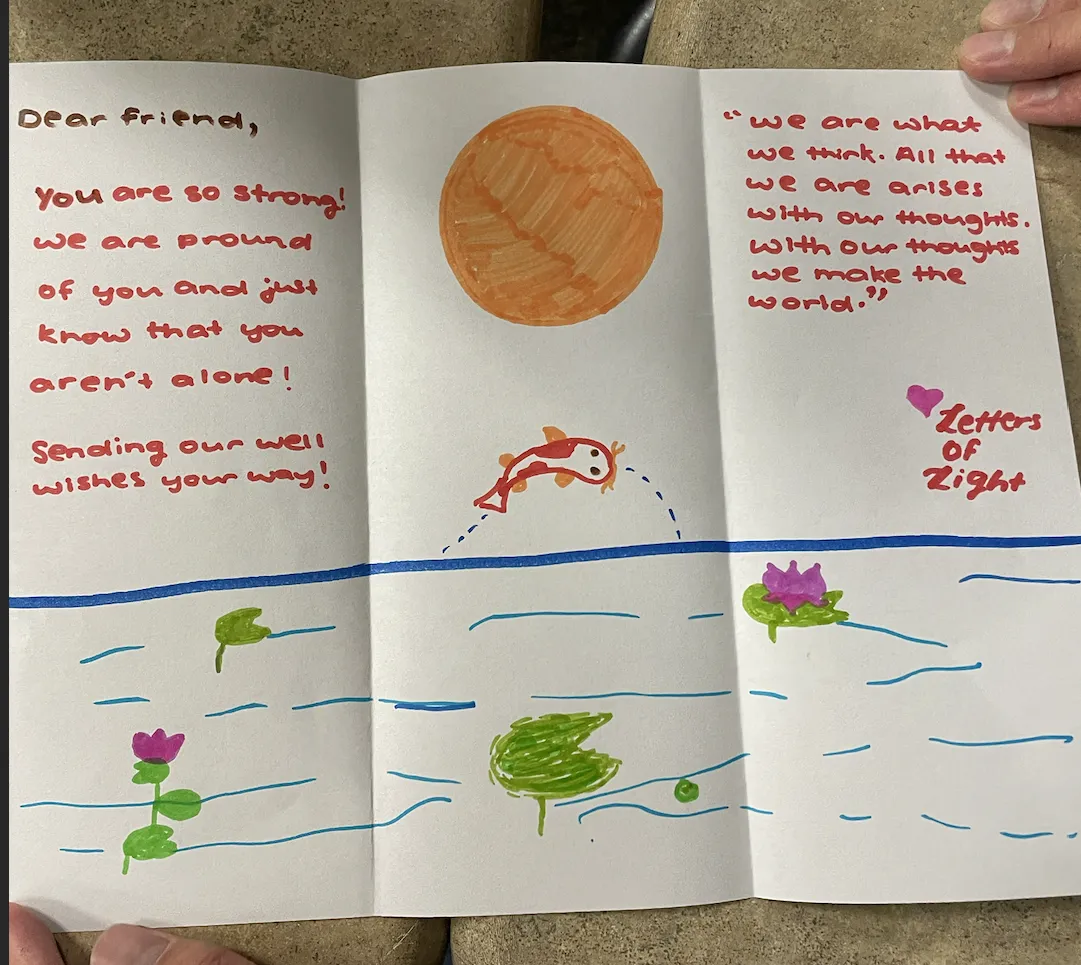 Dear friend,
You are so strong!
we are pround
of you and just
know that you
aren't alone!
Sending our well
wishes your way!
“we are what
we think. All that
we are arises
with our thoughts.
with our thoughts
we make the
world.”
Letters
of
Light